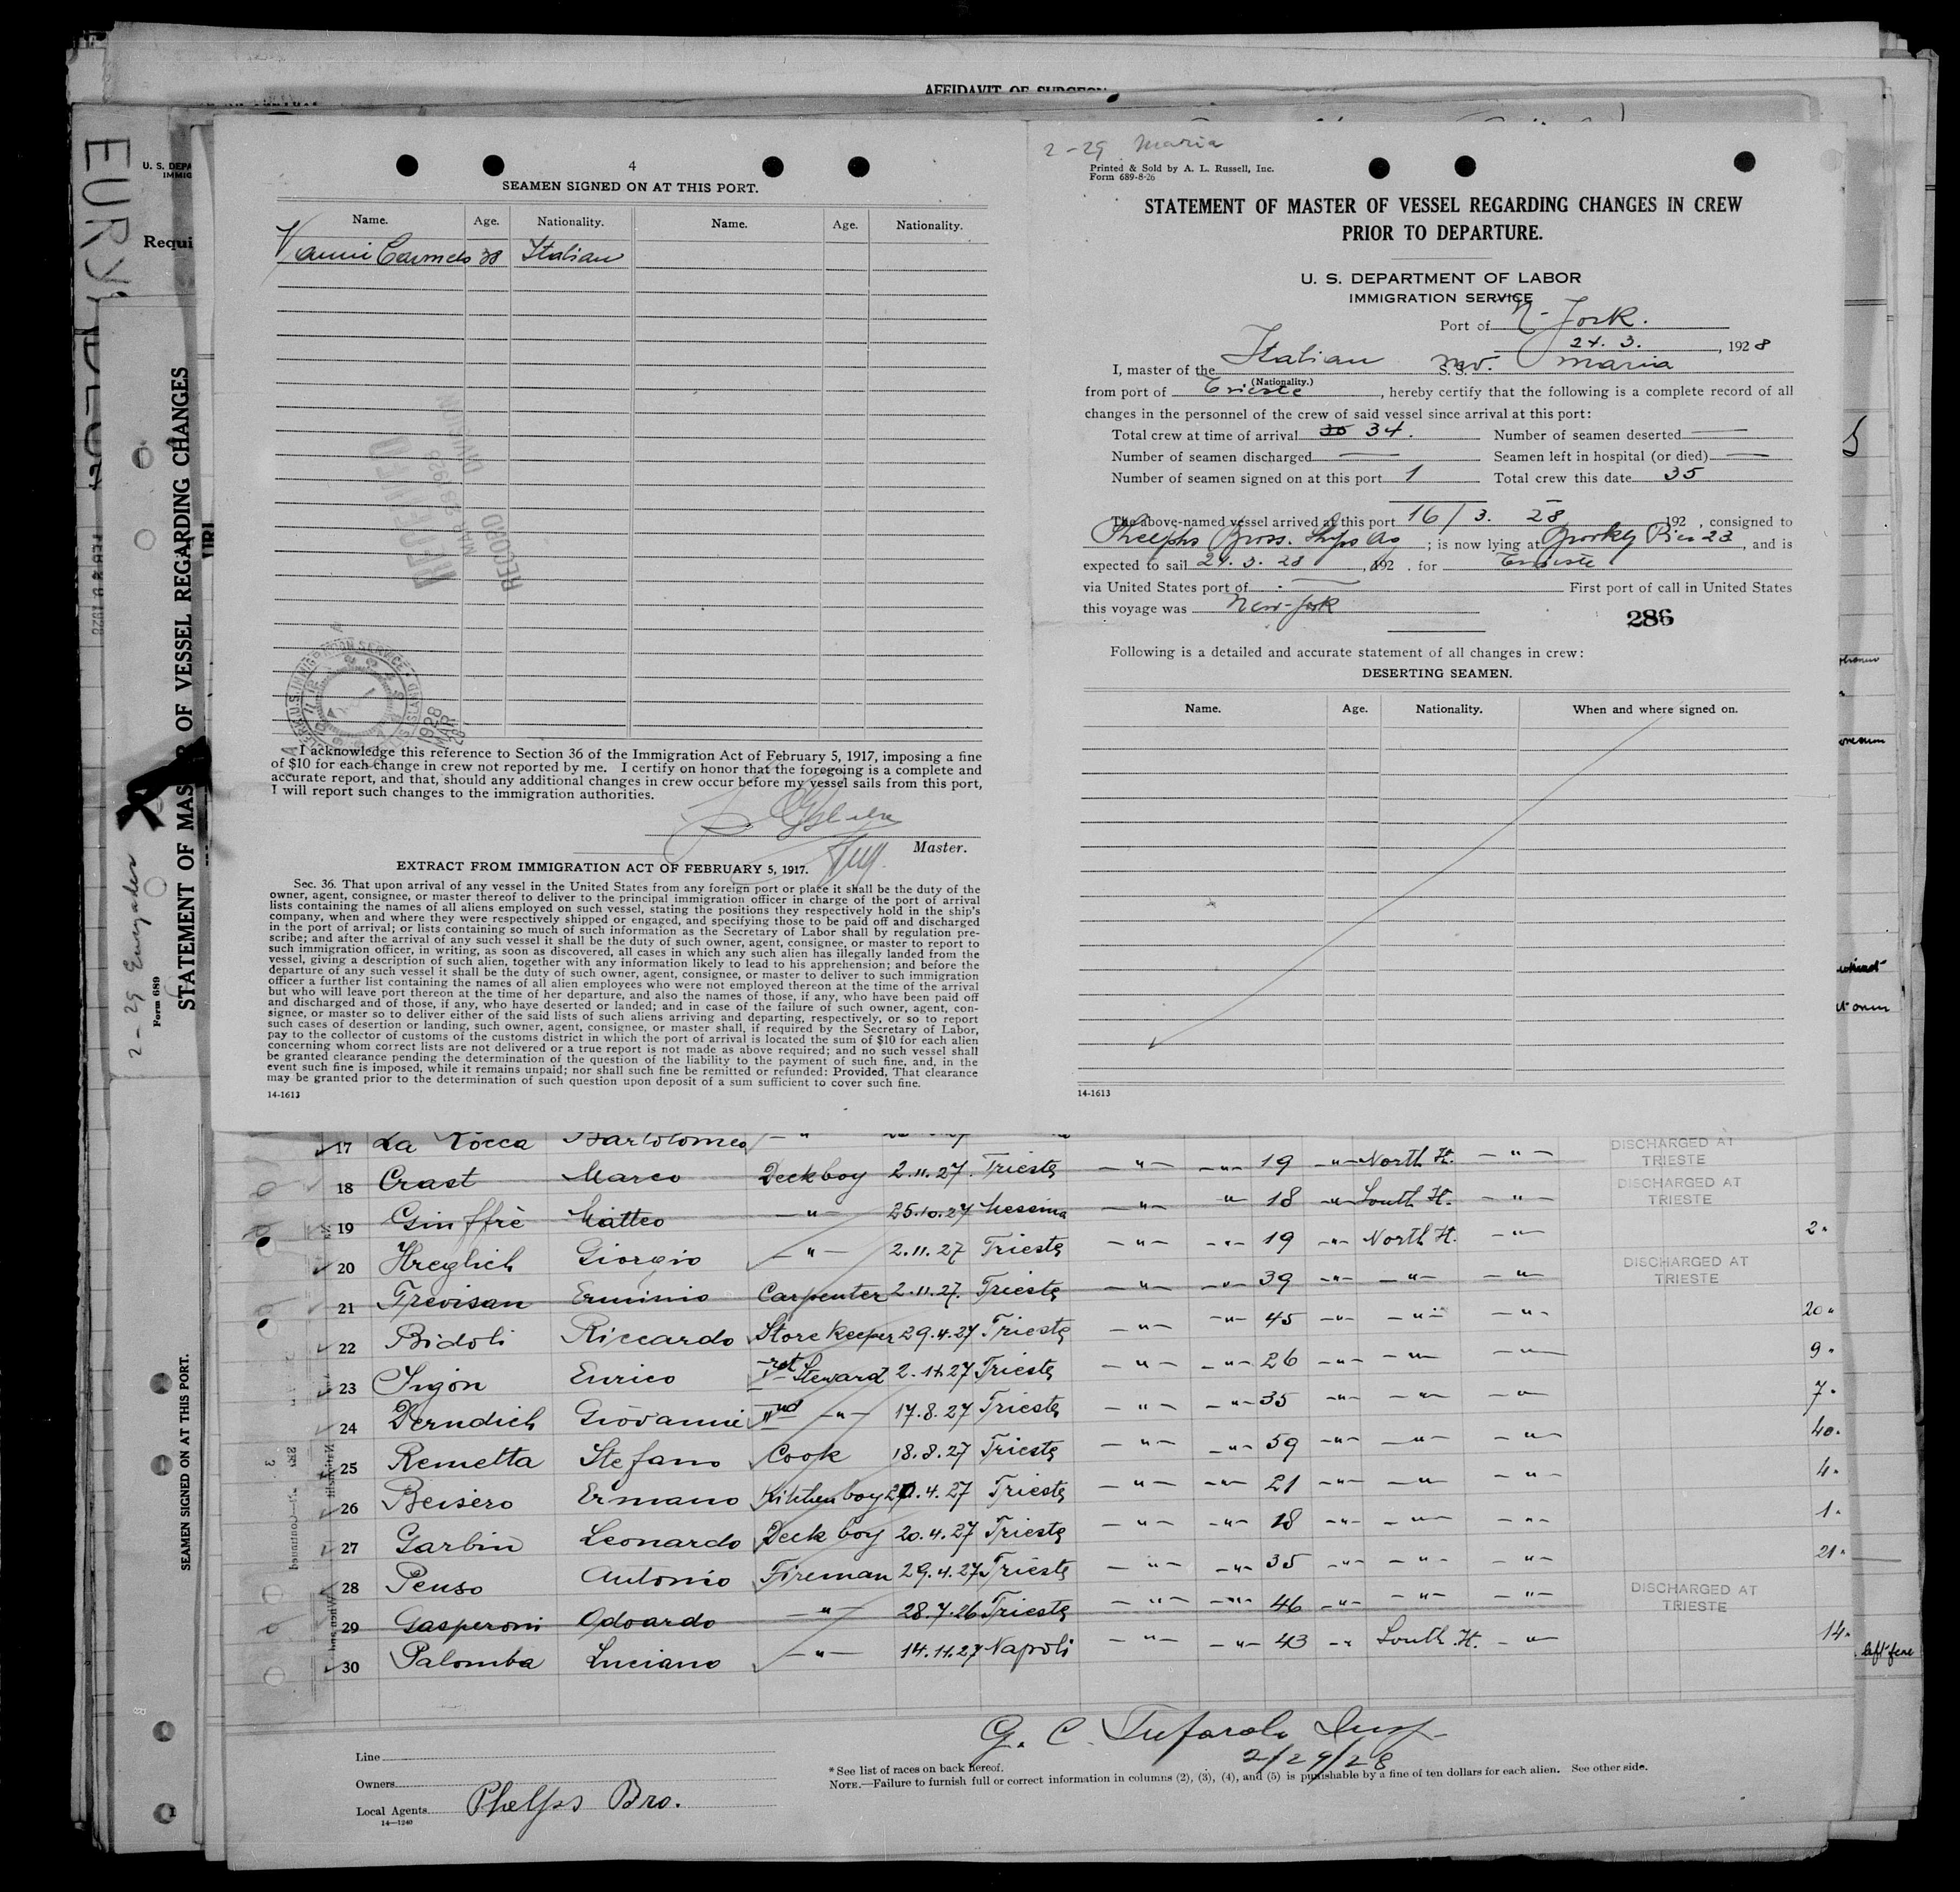 AFFIDAVIT OF SURGEON
4
SEAMEN SIGNED ON AT THIS PORT.
Name. Age. Nationality. Name. Age. Nationality.
Vanni Carmelo 38 Italian
I acknowledge this reference to Section 36 of the Immigration Act of February 5, 1917, imposing a fine
of $10 for each change in crew not reported by me. I certify on honor that the foregoing is a complete and
accurate report, and that, should any additional changes in crew occur before my vessel sails from this port,
I will report such changes to the immigration authorities.
Master.
EXTRACT FROM IMMIGRATION ACT OF FEBRUARY 5, 1917.
Sec. 36. That upon arrival of any vessel in the United States from any foreign port or place it shall be the duty of the
owner, agent, consignee, or master thereof to deliver to the principal immigration officer in charge of the port of arrival
lists containing the names of all aliens employed on such vessel, stating the positions they respectively hold in the ship's
company, when and where they were respectively shipped or engaged, and specifying those to be paid off and discharged
in the port of arrival; or lists containing so much of such information as the Secretary of Labor shall by regulation pre-
scribe; and after the arrival of any such vessel it shall be the duty of such owner, agent, consignee, or master to report to
such immigration officer, in writing, as soon as discovered, all cases in which any such alien has illegally landed from the
vessel, giving a description of such alien, together with any information likely to lead to his apprehension; and before the
departure of any such vessel it shall be the duty of such owner, agent, consignee, or master to deliver to such immigration
officer a further list containing the names of all alien employees who were not employed thereon at the time of the arrival
but who will leave port thereon at the time of her departure, and also the names of those, if any, who have been paid off
and discharged and of those, if any, who have deserted or landed; and in case of the failure of such owner, agent, con-
signee, or master so to deliver either of the said lists of such aliens arriving and departing, respectively, or so to report
such cases of desertion or landing, such owner, agent, consignee, or master shall, if required by the Secretary of Labor,
pay to the collector of customs of the customs district in which the port of arrival is located the sum of $10 for each alien
concerning whom correct lists are not delivered or a true report is not made as above required; and no such vessel shall
be granted clearance pending the determination of the question of the liability to the payment of such fine, and, in the
event such fine is imposed, while it remains unpaid; nor shall such fine be remitted or refunded: Provided, That clearance
may be granted prior to the determination of such question upon deposit of a sum sufficient to cover such fine.
14-1613
2-29 Maria
Printed & Sold by A. L. Russell, Inc.
Form 689-8-26
STATEMENT OF MASTER OF VESSEL REGARDING CHANGES IN CREW
PRIOR TO DEPARTURE.
U. S. DEPARTMENT OF LABOR
IMMIGRATION SERVICE
Port of N-York.
24. 3. , 1928
I, master of the Italian S.S. mv. Maria
(Nationality.)
from port of Trieste , hereby certify that the following is a complete record of all
changes in the personnel of the crew of said vessel since arrival at this port:
Total crew at time of arrival 35 34. Number of seamen deserted —
Number of seamen discharged — Seamen left in hospital (or died) —
Number of seamen signed on at this port 1 Total crew this date 35
The above-named vessel arrived at this port 16/3. 28 192 , consigned to
Phelps Bross. Ships Ag ; is now lying at Brookly Pier 23 , and is
expected to sail 24. 3. 28 , 192 . for Trieste
via United States port of — First port of call in United States
this voyage was New-York
286
Following is a detailed and accurate statement of all changes in crew:
DESERTING SEAMEN.
Name. Age. Nationality. When and where signed on.
14-1613
17 La Rocca Bartolomeo
DISCHARGED AT TRIESTE
18 Crast Marco Deckboy 2.11.27. Trieste — " — — " — 19 — " — North It. — " — DISCHARGED AT TRIESTE
19 Giuffrè Matteo — " — 25.10.27 Messina — " — " — 18 — " — South It. — " —
20 Hreglich Giorgio — " — 2.11.27 Trieste — " — — " — 19 — " — North It. — " — 2"
21 Trevisan Erminio Carpenter 2.11.27. Trieste — " — — " — 39 — " — — " — — " — DISCHARGED AT TRIESTE
22 Bidoli Riccardo Store keeper 29.4.27 Trieste — " — — " — 45 — " — — " — — " — 20"
23 Enrico Steward 2.11.27 Trieste — " — — " — 26 — " — — " — — " — 9"
24 Derndich Giovanni IInd — " — 17.8.27 Trieste — " — — " — 35 — " — — " — — " — 7"
25 Remetta Stefano Cook 18.8.27 Trieste — " — — " — 59 — " — — " — — " — 40"
26 Beisero Ermano Kitchen boy 20.4.27 Trieste — " — — " — 21 — " — — " — — " — 4"
27 Garbin Leonardo Deck boy 20.4.27 Trieste — " — — " — 18 — " — — " — — " — 1"
28 Penso Antonio Fireman 29.4.27 Trieste — " — — " — 35 — " — — " — — " — 21"
29 Gasperoni Odoardo — " — 28.7.26 Trieste — " — — " — 46 — " — — " — — " — DISCHARGED AT TRIESTE
30 Palomba Luciano — " — 14.11.27 Napoli — " — — " — 43 — " South It. — " — 14"
G. C. Tufarolo Insp.
2/29/28
Line
Owners
Local Agents Phelps Bro.
14—1240
*See list of races on back hereof.
NOTE.—Failure to furnish full or correct information in columns (2), (3), (4), and (5) is punishable by a fine of ten dollars for each alien. See other side.
STATEMENT OF MAS OF VESSEL REGARDING CHANGES
SEAMEN SIGNED ON AT THIS PORT.
Form 689
U. S. DEPA
IMMIG
Requi